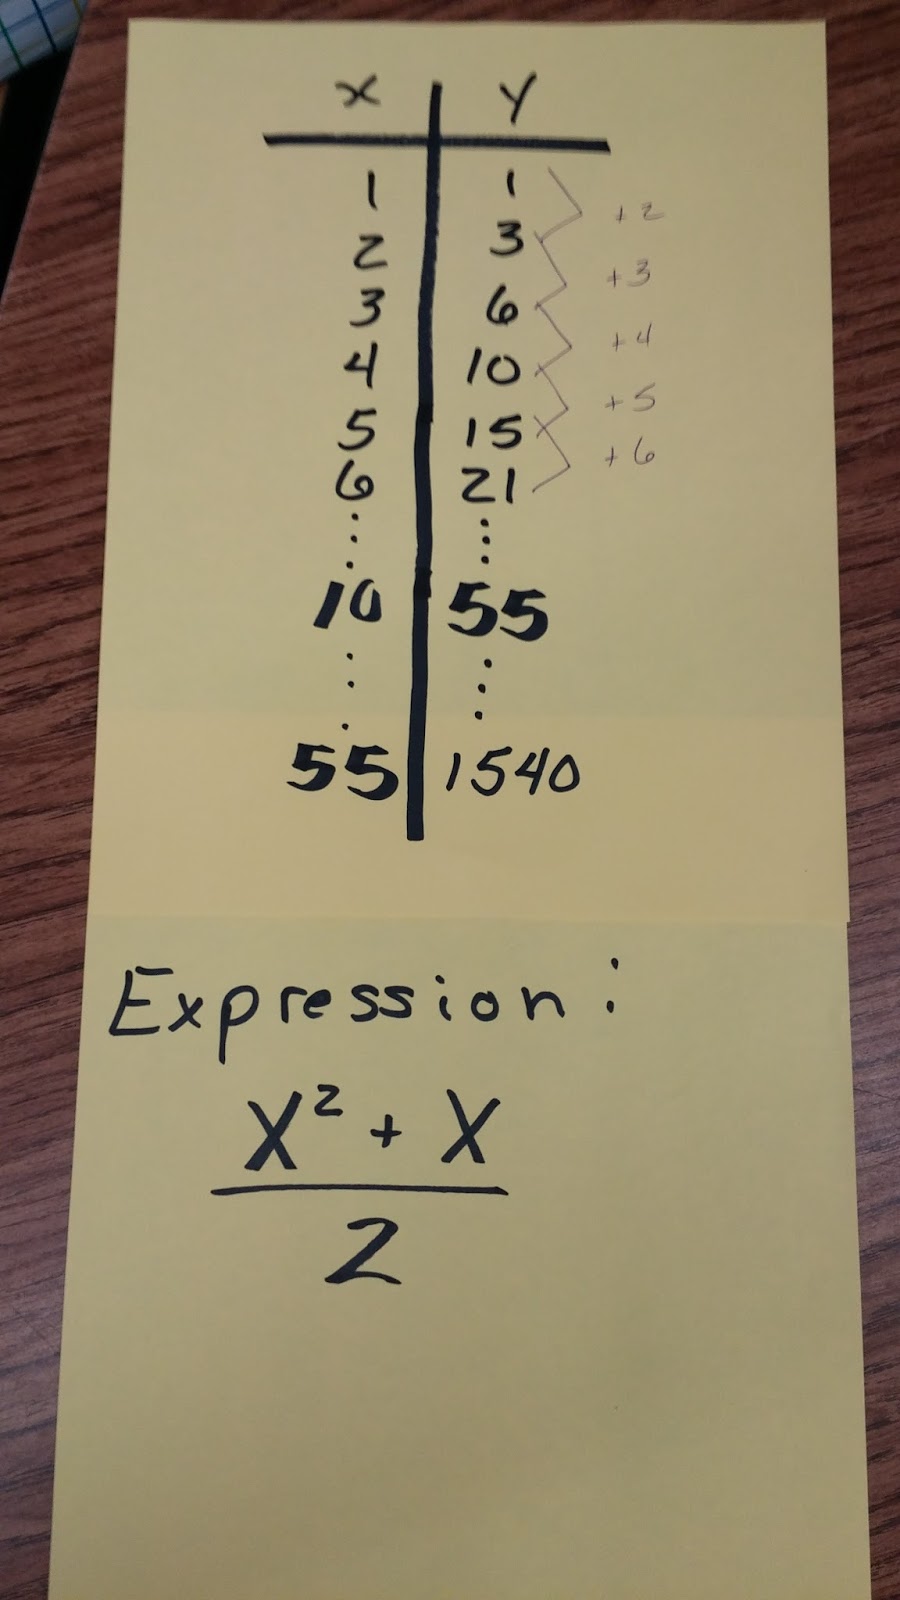 x y
1 1
+2
2 3
+3
3 6
+4
4 10
+5
5 15
+6
6 21
⋮ ⋮
10 55
⋮ ⋮
55 1540
Expression:
X² + X
2